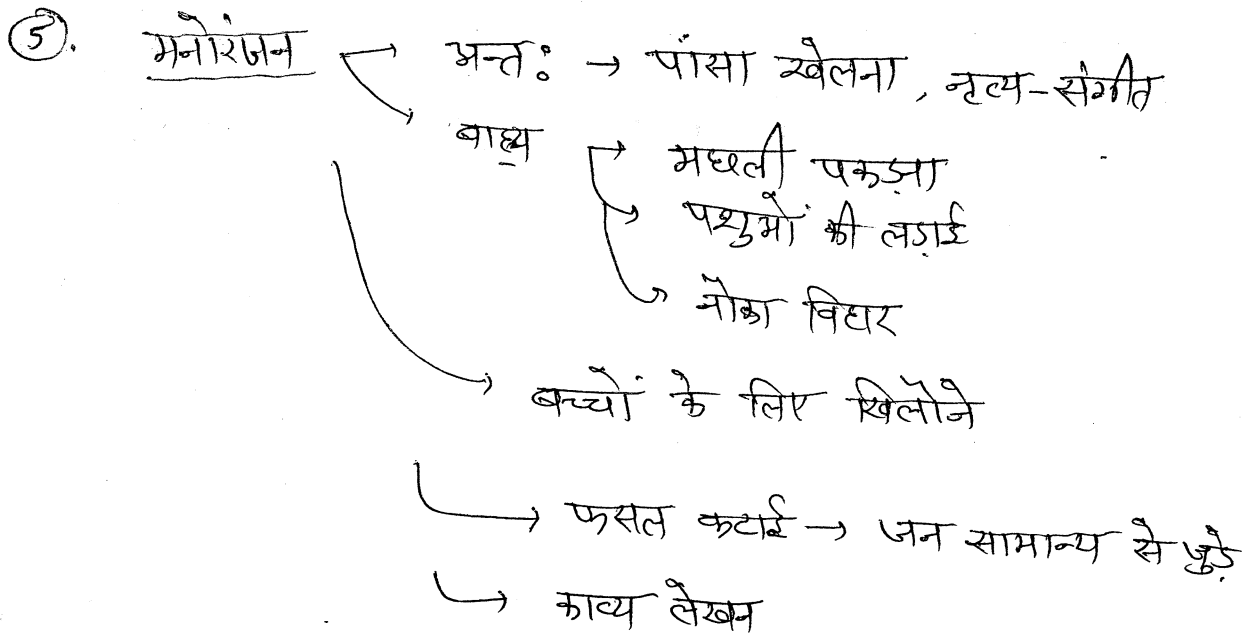 ⑤. मनोरंजन → अन्तः → पांसा खेलना, नृत्य-संगीत
→ बाह्य → मछली पकड़ना
→ पशुओं की लड़ाई
→ नौका विहार
→ बच्चों के लिए खिलौने
→ फसल कटाई → जन सामान्य से जुड़े
→ काव्य लेखन